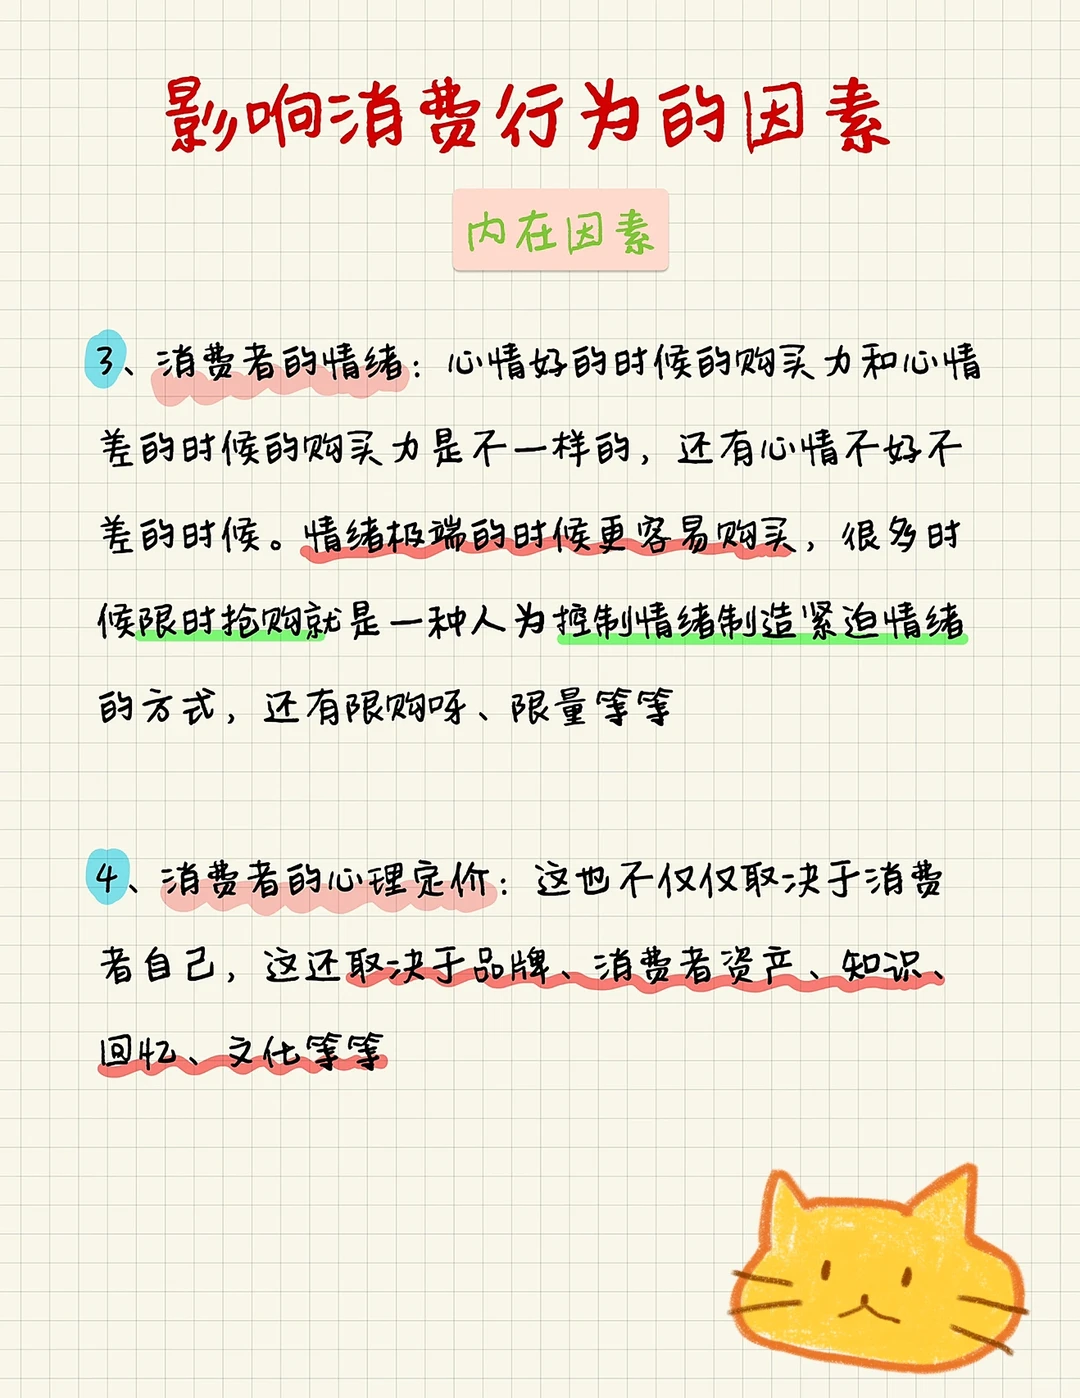 影响消费行为的因素
内在因素
3、消费者的情绪：心情好的时候的购买力和心情
差的时候的购买力是不一样的，还有心情不好不
差的时候。情绪极端的时候更容易购买，很多时
候限时抢购就是一种人为控制情绪制造紧迫情绪
的方式，还有限购呀、限量等等
4、消费者的心理定价：这也不仅仅取决于消费
者自己，这还取决于品牌、消费者资产、知识、
回忆、文化等等